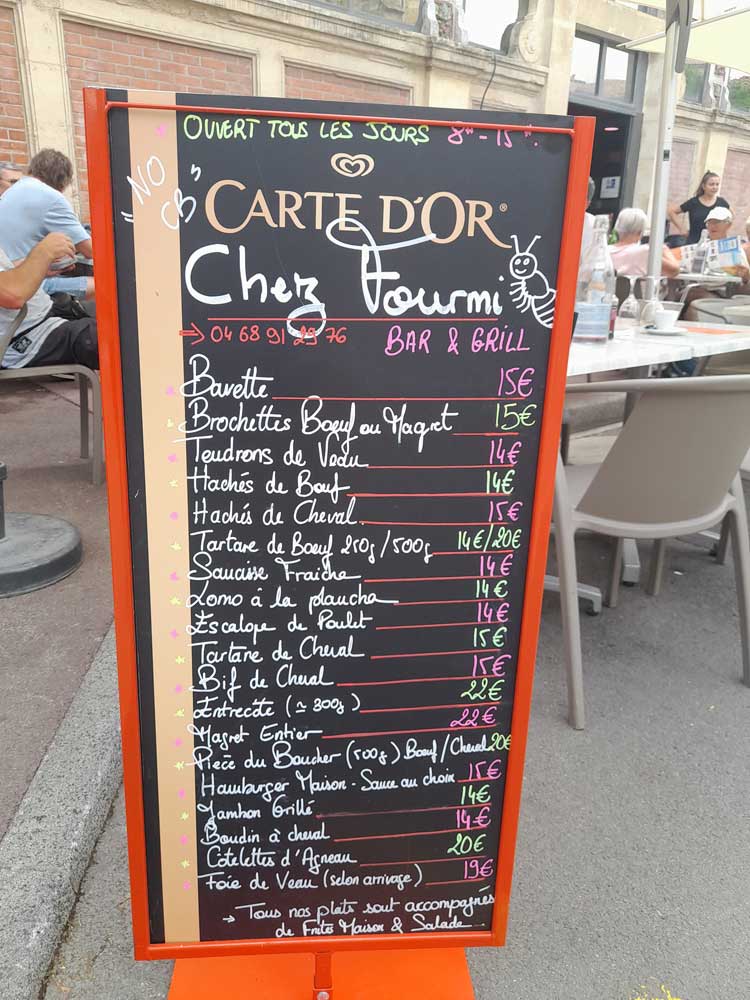 OUVERT TOUS LES JOURS 8H - 15H.
"NO CB"
CARTE D'OR®
Chez Fourmi
→ 04 68 91 29 76 BAR & GRILL
Bavette 15€
Brochettes Bœuf ou Magret 15€
Tendrons de Veau 14€
Hachés de Bœuf 14€
Hachés de Cheval 15€
Tartare de Bœuf 250g/500g 14€/20€
Saucisse Fraîche 14€
Lomo à la plancha 14€
Escalope de Poulet 14€
Tartare de Cheval 15€
Bif de Cheval 15€
Entrecôte (≃ 300g) 22€
Magret Entier 22€
Pièce du Boucher (500g) Bœuf/Cheval 20€
Hamburger Maison - Sauce au choix 15€
Jambon Grillé 14€
Boudin à cheval 14€
Côtelettes d'Agneau 20€
Foie de Veau (selon arrivage) 19€
→ Tous nos plats sont accompagnés
de Frites Maison & Salade